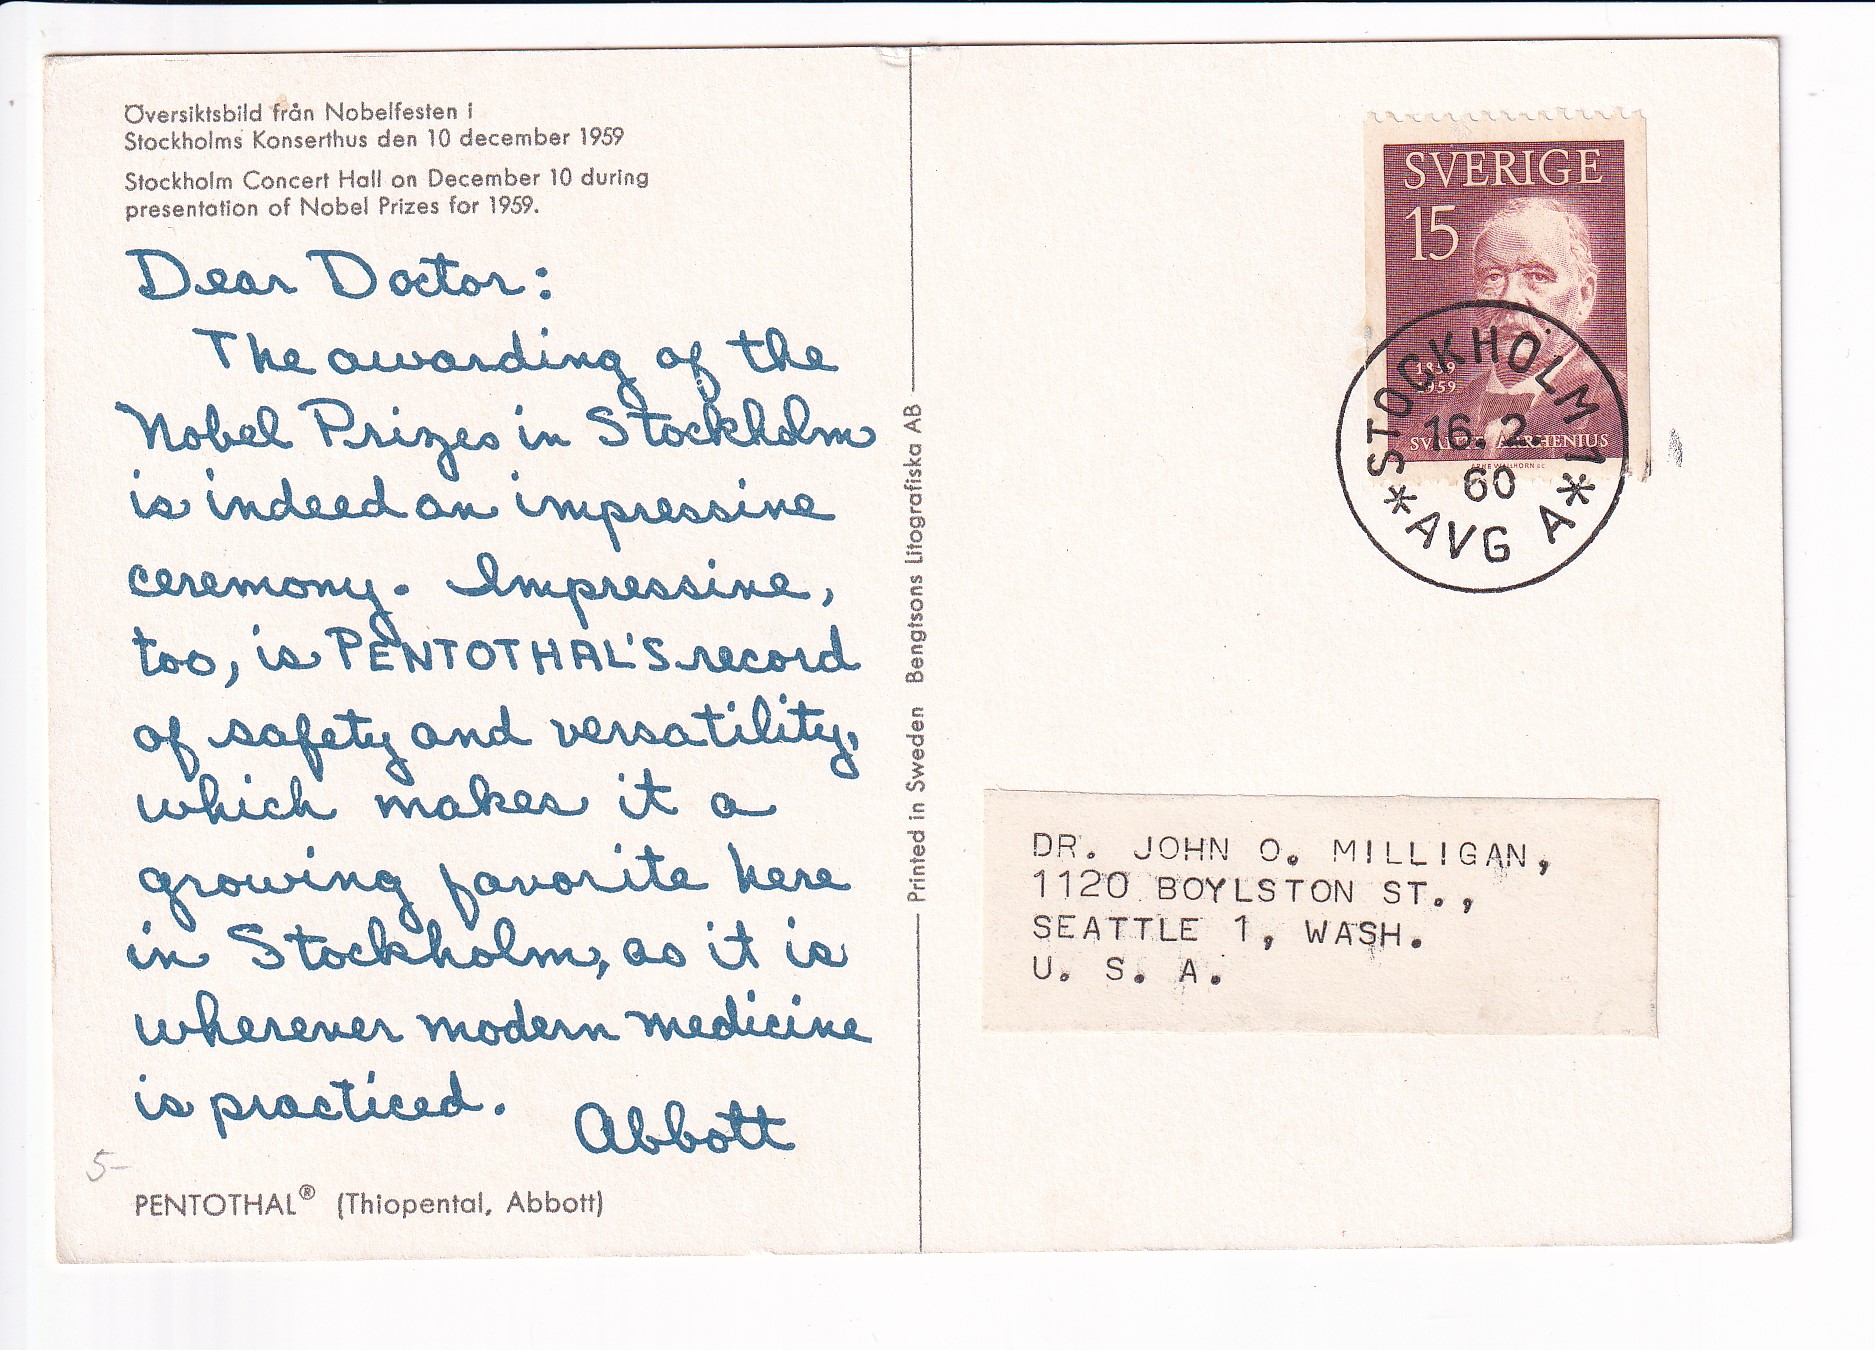 Översiktsbild från Nobelfesten i
Stockholms Konserthus den 10 december 1959
Stockholm Concert Hall on December 10 during
presentation of Nobel Prizes for 1959.
Dear Doctor:
The awarding of the
Nobel Prizes in Stockholm
is indeed an impressive
ceremony. Impressive,
too, is PENTOTHAL'S record
of safety and versatility,
which makes it a
growing favorite here
in Stockholm, as it is
wherever modern medicine
is practiced.
Abbott
5-
PENTOTHAL® (Thiopental, Abbott)
Printed in Sweden Bengtsons Litografiska AB
SVERIGE
15
1859
1959
ARRHENIUS
ARNE WALLHORN SC
STOCKHOLM 1
16. 2.
60
* AVG A *
DR. JOHN O. MILLIGAN,
1120 BOYLSTON ST.,
SEATTLE 1, WASH.
U. S. A.